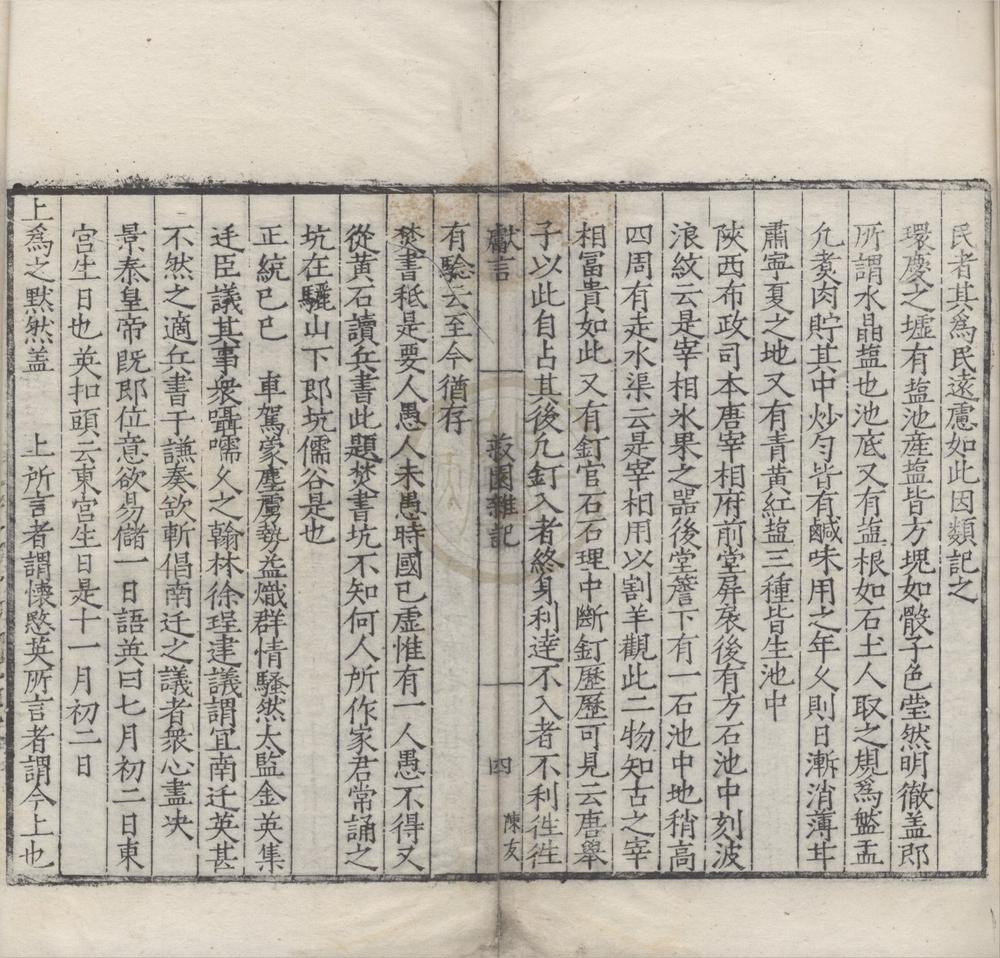 民者其爲民遠慮如此因類記之
環慶之墟有塩池産塩皆方塊如骰子色莹然明徹盖即
所謂水晶塩也池底又有塩根如石土人取之規爲盤盂
凢煑肉貯其中炒勻皆有鹹味用之年乆則日漸消薄甘
肅寧夏之地又有青黃紅塩三種皆生池中
陝西布政司本唐宰相府前堂屏扆後有方石池中刻波
浪紋云是宰相氷果之器後堂簷下有一石池中地稍高
四周有走水渠云是宰相用以割羊觀此二物知古之宰
相冨貴如此又有釘官石石理中斷釘歷歷可見云唐舉
子以此自占其後凢釘入者終身利逹不入者不利徃徃
獻言 菽園雜記 四 陳友
有驗云至今猶存
焚書秪是要人愚人未愚時國已虛惟有一人愚不得又
從黃石讀兵書此題焚書坑不知何人所作家君常誦之
坑在驪山下即坑儒谷是也
正統己巳 車駕蒙塵虜勢益熾群情騷然太監金英集
廷臣議其事衆囁嚅乆之翰林徐珵建議謂宜南迁英甚
不然之適兵書于謙奏欲斬倡南迁之議者衆心盡决
景泰皇帝既即位意欲易儲一日語英曰七月初二日東
宮生日也英扣頭云東宮生日是十一月初二日
上爲之默然盖 上所言者謂懷愍英所言者謂今上也